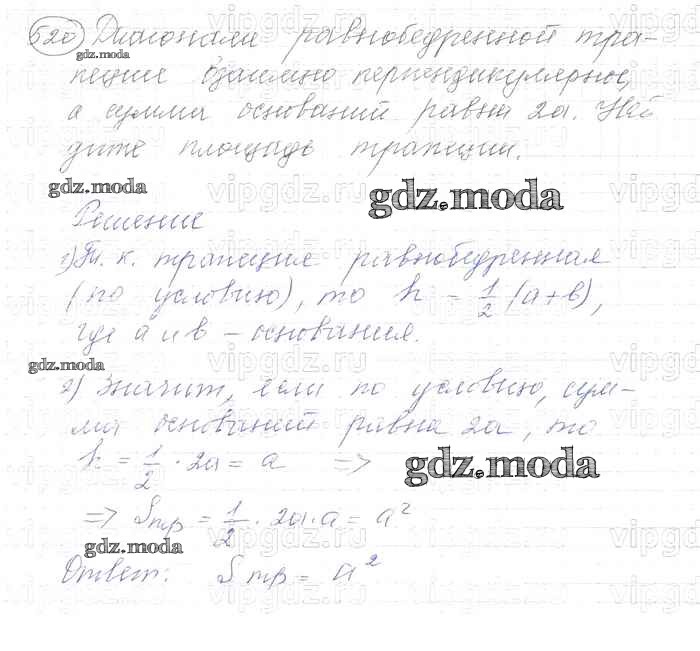 520) Диагонали равнобедренной тра-
gdz.moda
пеции взаимно перпендикулярные,
а сумма оснований равна 2a. Най
дите площадь трапеции.
gdz.moda
gdz.moda
Решение
1) Т. к. трапеция равнобедренная
(по условию), то h = 1/2 (a+b),
где a и b – основания.
gdz.moda
2) Значит, если по условию, сум-
ма оснований равна 2a, то
h = 1/2 · 2a = a =>
gdz.moda
=> Sтр = 1/2 · 2a · a = a²
gdz.moda
Ответ: Sтр = a²
vipgdz.ru